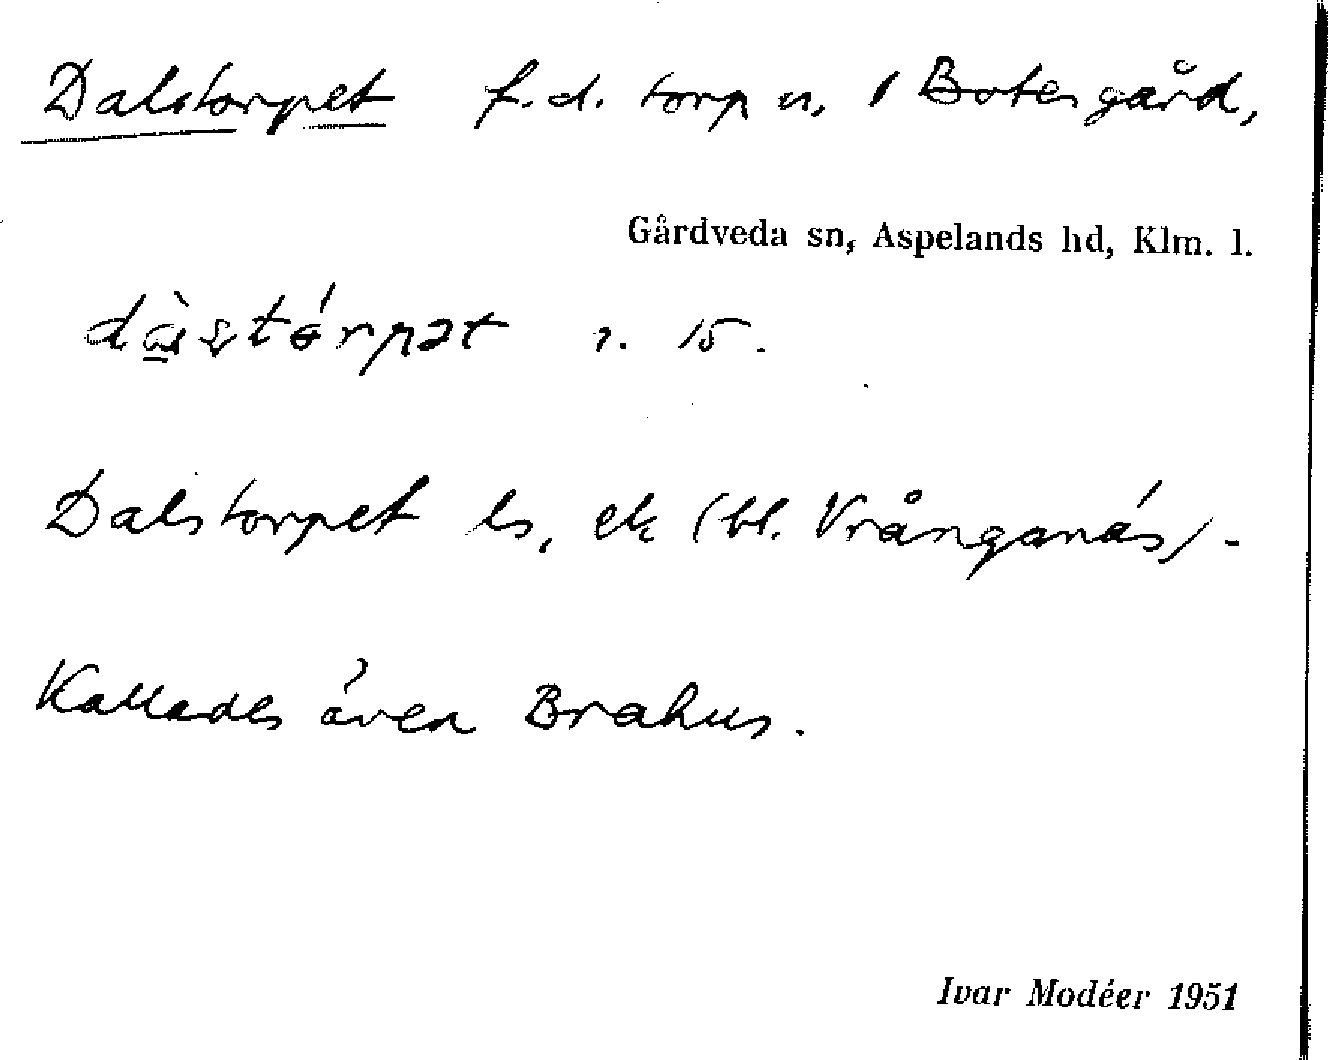 Dalstorpet f.d. torp u. Botergård,
Gårdveda sn, Aspelands hd, Klm. l.
1. 15.
Dalstorpet ls, ek (bl. Vrånganäs).
Kallades även Brahus.
Ivar Modéer 1951